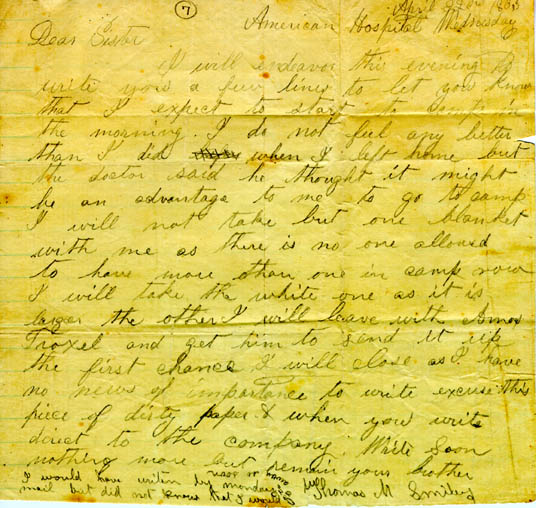 7
April 22nd 1863
American Hospital Wednesday
Dear Sister
I will endeavor this evening to
write you a few lines to let you know
that I expect to start to camp in
the morning. I do not feel any better
than I did when I left home but
the doctor said he thought it might
be an advantage to me to go to camp
I will not take but one blanket
with me as there is no one allowed
to have more than one in camp now
I will take the white one as it is
larger the other I will leave with Amos
Troxel and get him to send it up
the first chance I will close as I have
no news of importance to write excuse this
piece of dirty paper & when you write
direct to the company. Write Soon
nothing more but remain your brother
Thomas M Smiley
I would have writen by mondays
mail but did not know that I would